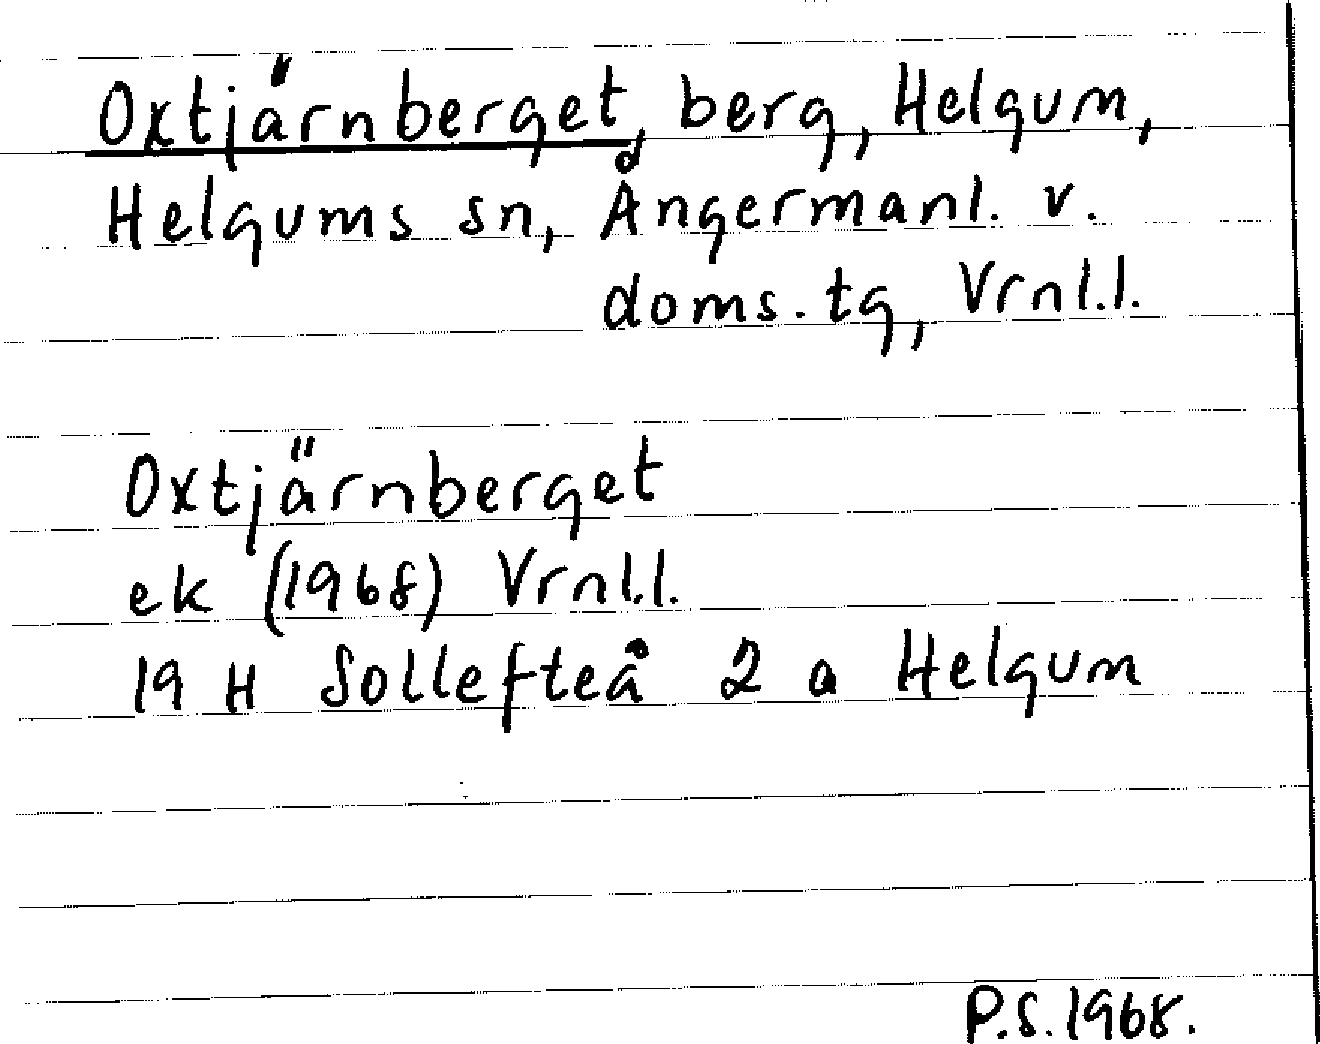 Oxtjärnberget, berg, Helgum,
Helgums sn, Ångermanl. v.
doms. tg, Vrnl.l.
Oxtjärnberget
ek (1968) Vrnl.l.
19 H Sollefteå 2 a Helgum
P.S. 1968.